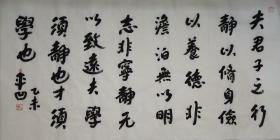 夫君子之行
静以修身儉
以養德非
澹泊無以明
志非寧静无
以致遠夫學
須静也才須
學也
乙未